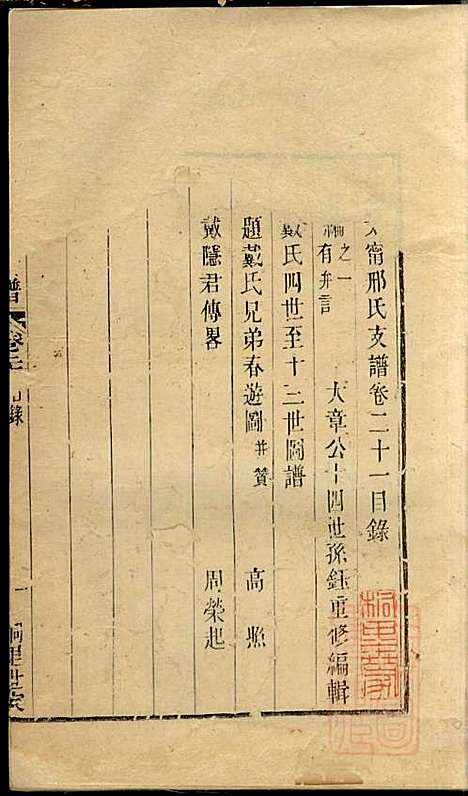 甯邢氏支譜卷二十一目錄
編之一有弁言 大章公十四世孫鈺重修編輯
戴氏四世至十三世圖譜
題戴氏兄弟春遊圖并贊 高照
戴隱君傳畧 周榮起
譜 卷 目錄 一 桐里世家